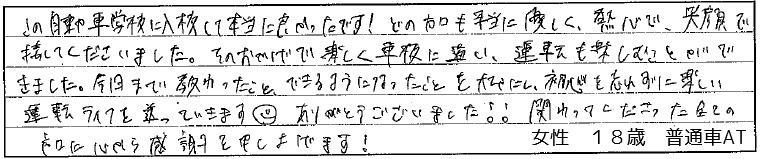 この自動車学校に入校して本当に良かったです！どの方も本当に優しく、熱心で、笑顔で
接してくださいました。そのおかげで楽しく車校に通い、運転も楽しむことができ
きました。今日まで教わったこと、できるようになったことを大切にし、初心を忘れずに楽しい
運転ライフを送っていきます☺ ありがとうございました!! 関わってくださった全ての
方々に心から感謝を申し上げます！
女性 18歳 普通車AT